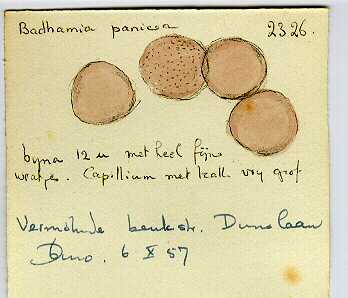 Badhamia panicea 2326.
byna 12 u met heel fijne
wratjes. Capillium met kalk vry grof
Vermolmde beukstr. Dunolaan
Duno. 6 X 57